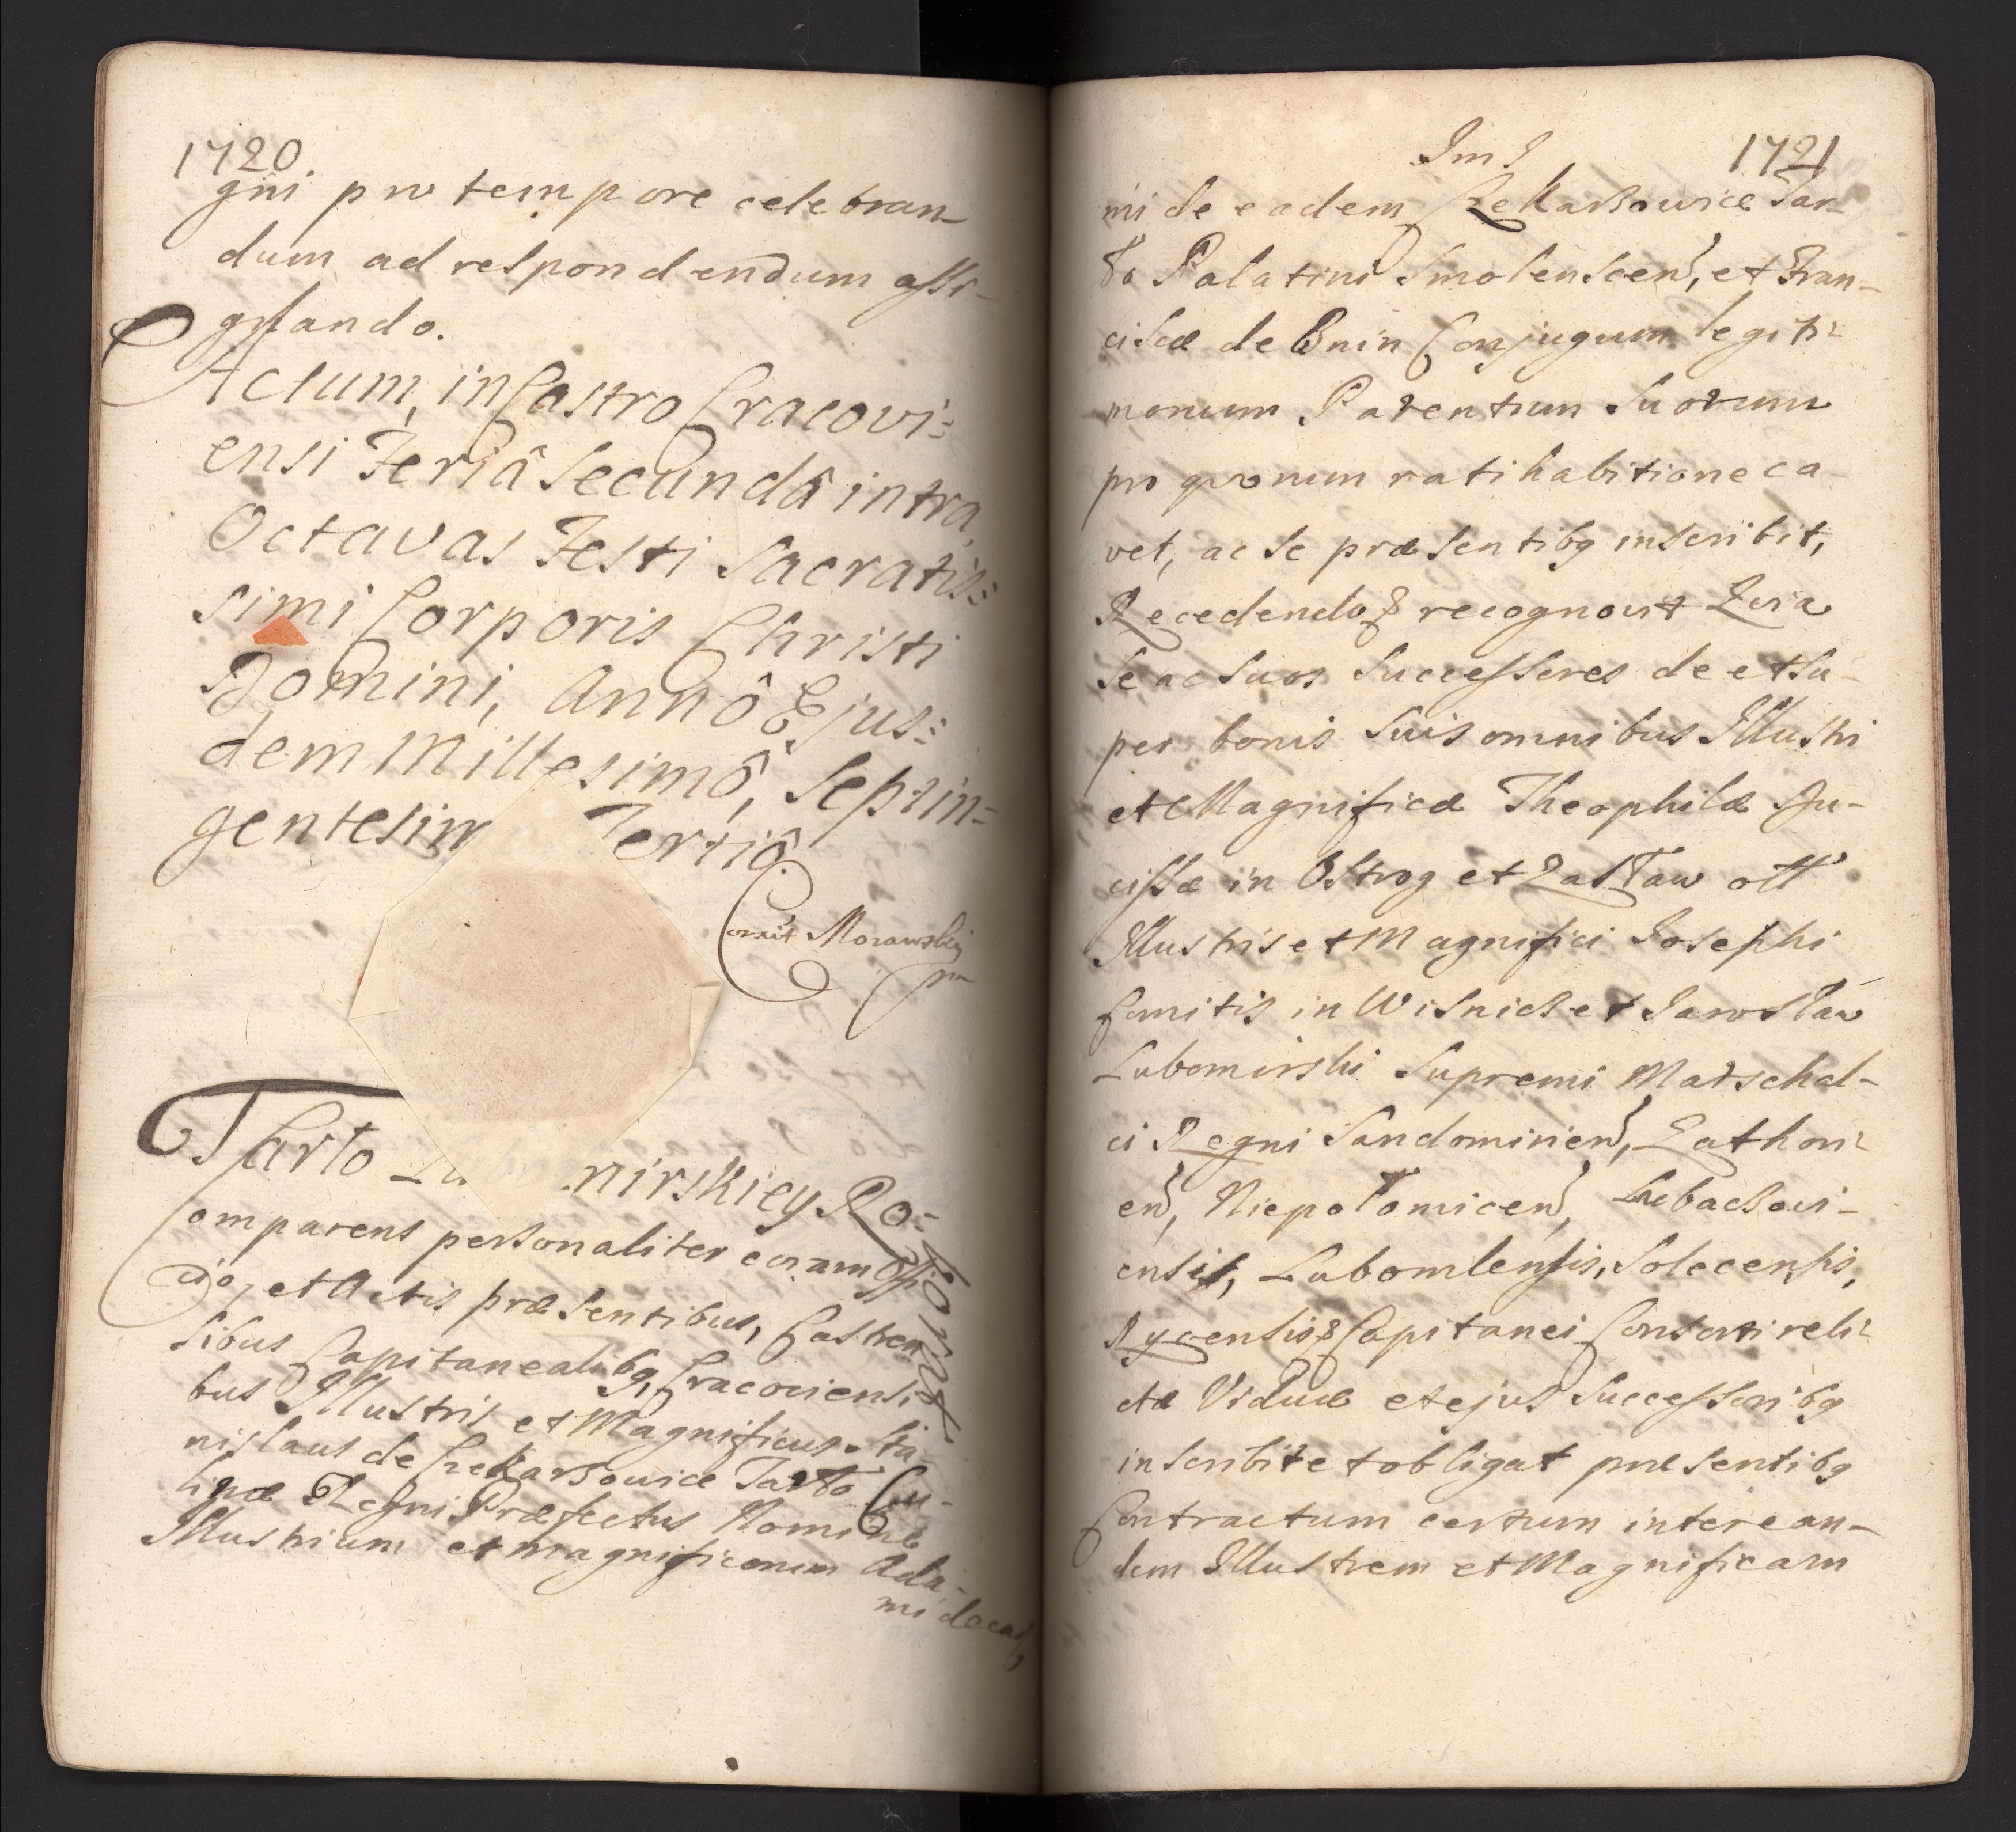 1720
gni pro tempore celebran
dum ad respondendum assi-
gnando.
Actum, in Castro Cracovi:
ensi Feriâ Secundâ intra
Octavas Festi Sacratis:
simi Corporis Christi
Domini, Annô Ejus:
dem Millesimô, Septin=
gentesim Tertiô.
Correxit Morawsky
Tarło Lu nirskiey Ro=
borat
Comparens personaliter coram Offi
cio, et Actis præsentibus, Castren
sibus Capitanealibq, Cracoviensi
bus Illustris et Magnificus Sta-
nislaus de Czekarzowice Tarło Cu-
linæ Regni Præfectus Nomine
Illustrium et magnificorum Ada-
mi de ead
1721
mi de eadem Czekarzowice Tar-
ło Palatini Smolenscen, et Fran-
ciscæ de Bnin Conjugum legiti-
morum Parentum Suorum
pro quorum ratihabitione ca-
vet, ac se præsentibq inscribit,
Recedendo & recognovit Quia
Se ac Suos Successores de et su-
per bonis Suis omnibus Illustri
et Magnificæ Theophilæ Du-
cissæ in Ostrog et Zasław olł
Illustris et Magnifici Josephi
Comitis in Wisnicz et Jarosław
Lubomirski Supremi Marschal-
ci Regni Sandomirien, Zathori-
en, Niepołomicen, Lubaczovi-
ensis, Lubomlensis, Solecensis,
Rycensis & Capitanei Consorti reli-
ctæ Viduæ et ejus Successoribq
inscribit et obligat præsentibq
Contractum certum inter ean-
dem Illustrem et Magnificam